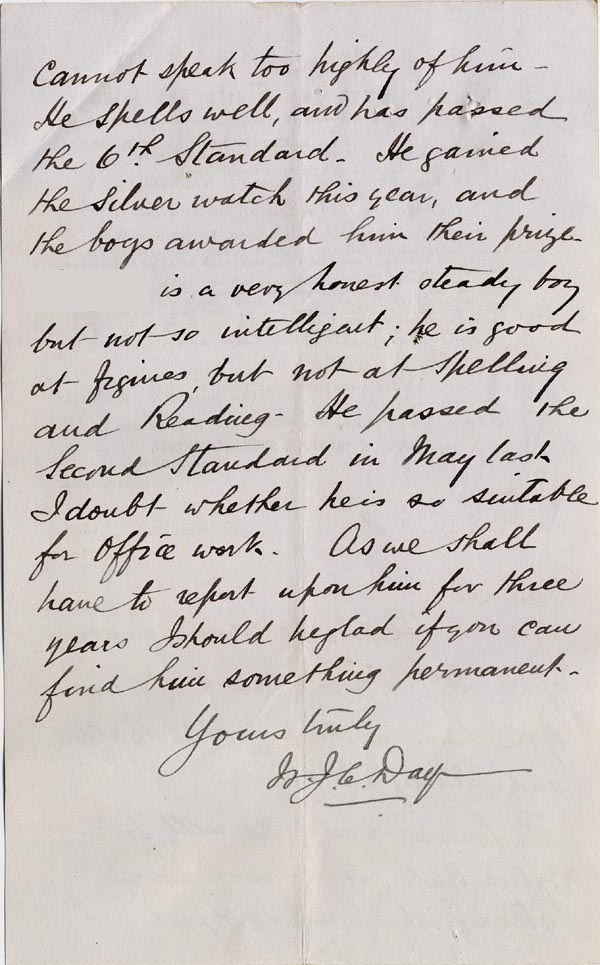 cannot speak too highly of him -
He spells well, and has passed
the 6th. Standard - He gained
the silver watch this year, and
the boys awarded him their prize -
is a very honest steady boy
but not so intelligent; he is good
at figures, but not at spelling
and Reading - He passed the
Second Standard in May last
I doubt whether he is so suitable
for office work. As we shall
have to report upon him for three
years I should be glad if you can
find him something permanent -
Yours truly
J. C. Day